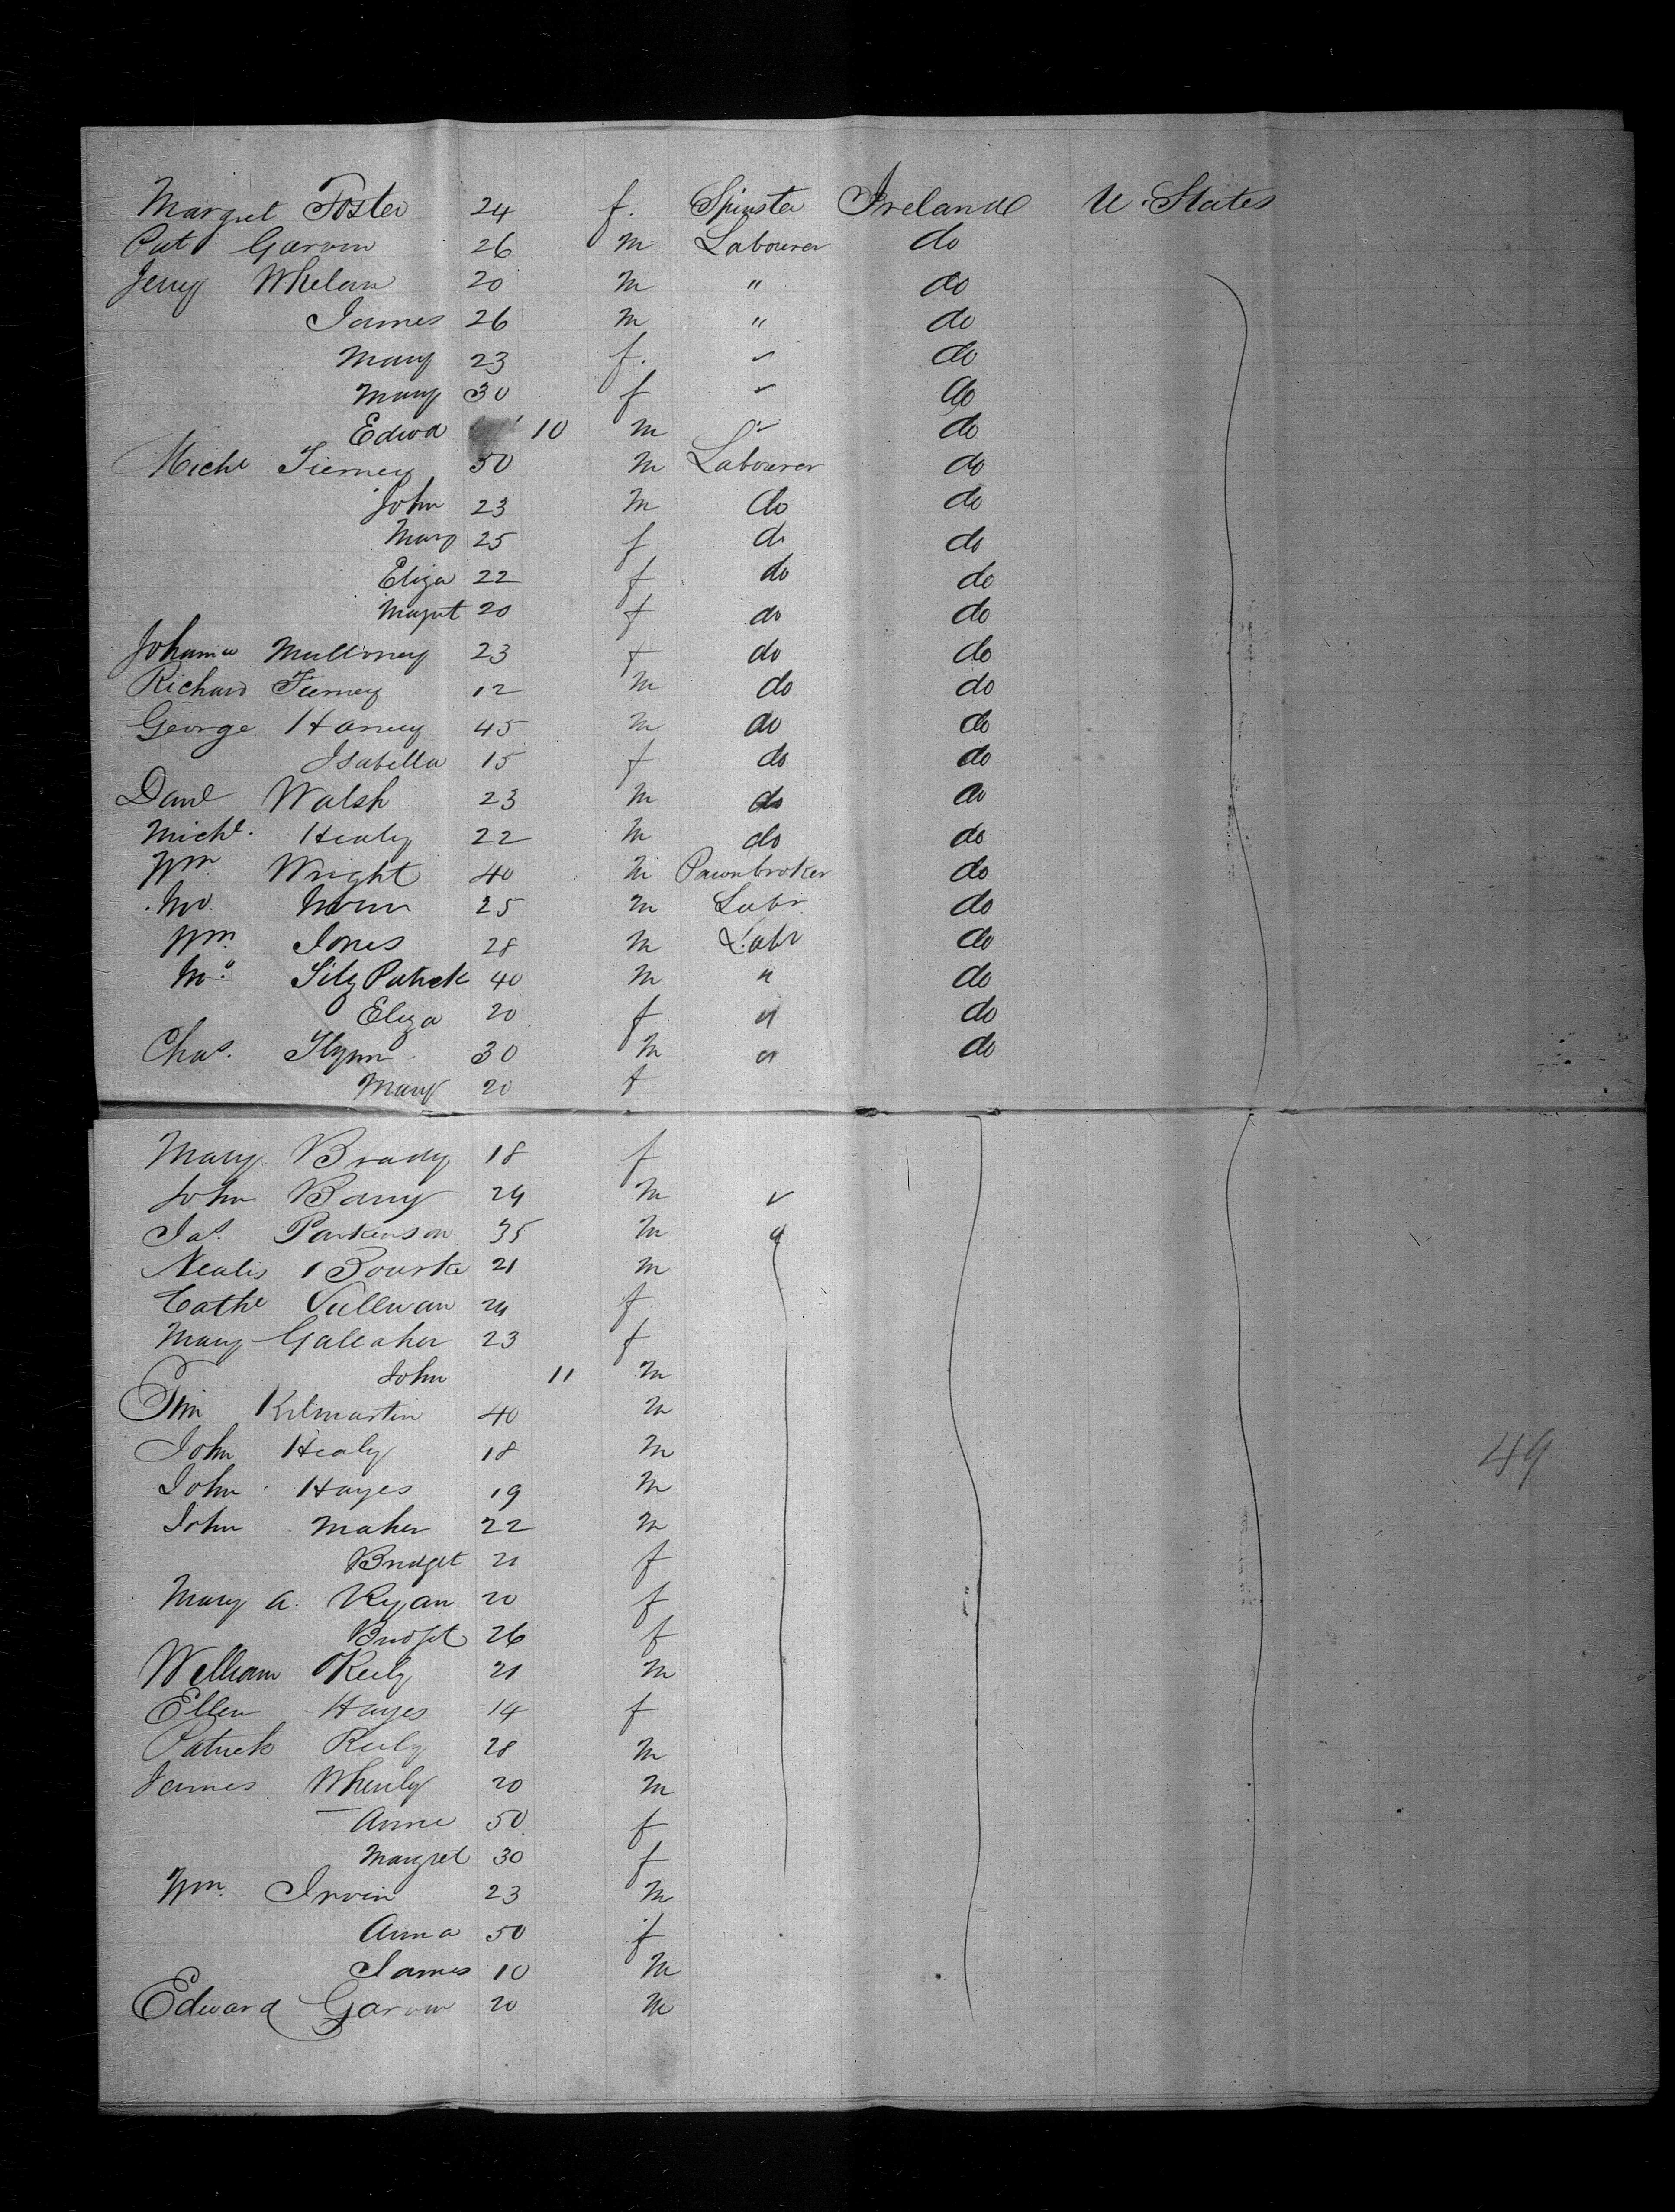 Margret Foster 24 f. Spinster Ireland U. States
Pat Garvin 26 m Labourer do
Jerry Whelan 20 m " do
James 26 m " do
Mary 23 f. " do
Mary 30 f " do
Edwd 10 m " do
Michl Tierney 50 m Labourer do
John 23 m do do
Mary 25 f do do
Eliza 22 f do do
Magrt 20 f do do
Johanna Mulloney 23 f do do
Richard Tierney 12 m do do
George Harvey 45 m do do
Isabella 15 f do do
Danl Walsh 23 m do do
Michl. Healy 22 m do do
Wm. Wright 40 m Pawnbroker do
25 m Labr. do
Wm. Jones 28 m Labr do
FitzPatrick 40 m " do
Eliza 20 f " do
Chas. Flynn 30 m " do
Mary 20 f
Mary Brady 18 f
John Barry 24 m "
Jas. Parkinson 35 m "
Bourke 21 m
Cathe Sullivan 24 f
Mary Galeaher 23 f
John 11 m
Tim Kilmartin 40 m
John Healy 18 m
49
John Hayes 19 m
John Maher 22 m
Bridget 21 f
Mary A. Ryan 20 f
Bridgt 26 f
William Reily 21 m
Ellen Hayes 14 f
Patrick Reily 28 m
James 20 m
Anne 50 f
Margret 30 f
Wm. Irvin 23 m
Anna 50 f
James 10 m
Edward Garvin 20 m